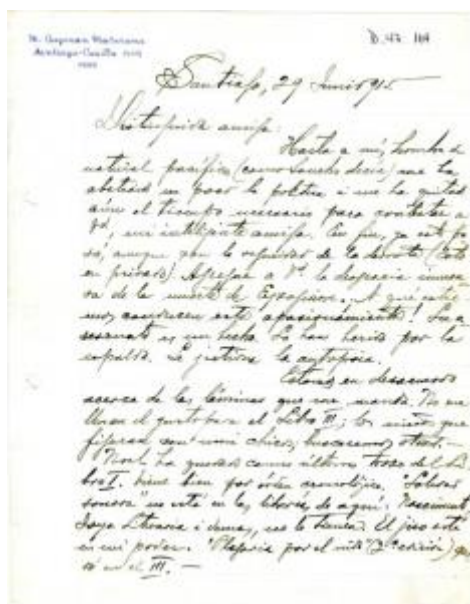 M. Guzmán Maturana
Santiago-Casilla
Santiago, 29 Junio 915
Distinguida amiga:
Hasta a mí, hombre de
natural pacífico (como Sancho decía) me ha
un poco la política i me ha quitado
aún el tiempo necesario para contestar a
Vd, mi inteligente amiga. En fin, ya esto pa
só, aunque con la de la derrota (Esto
en privado) Agregue a Vd. la desgracia inmen
sa de la muerte de . A qué extre
mos conducen este apasionamiento! Fue
asesinato es un hecho. Lo han herido por la
espalda. Lo la autopsia.
Estamos en desacuerdo
acerca de las láminas que me manda. No me
llenan el gusto para el Libro III; los niños que
figuran son mui chicos; buscaremos otras.—
"Noel" ha quedado como último trozo del Li
bro I. Viene bien por orden cronológico. "
sonora" no está en las librerías de aquí. Nascimento
Joya Literaria i demas, no la tienen. El jiro está
en mi poder. "Plegaria por el nido" (2ª edición)
en el III.—